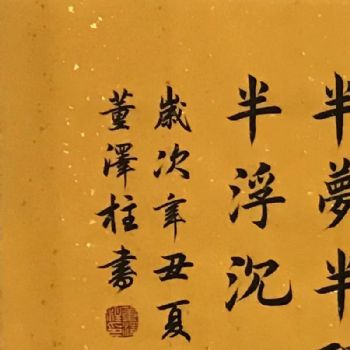 半夢半
半浮沉
歲次辛丑夏
董澤柱書